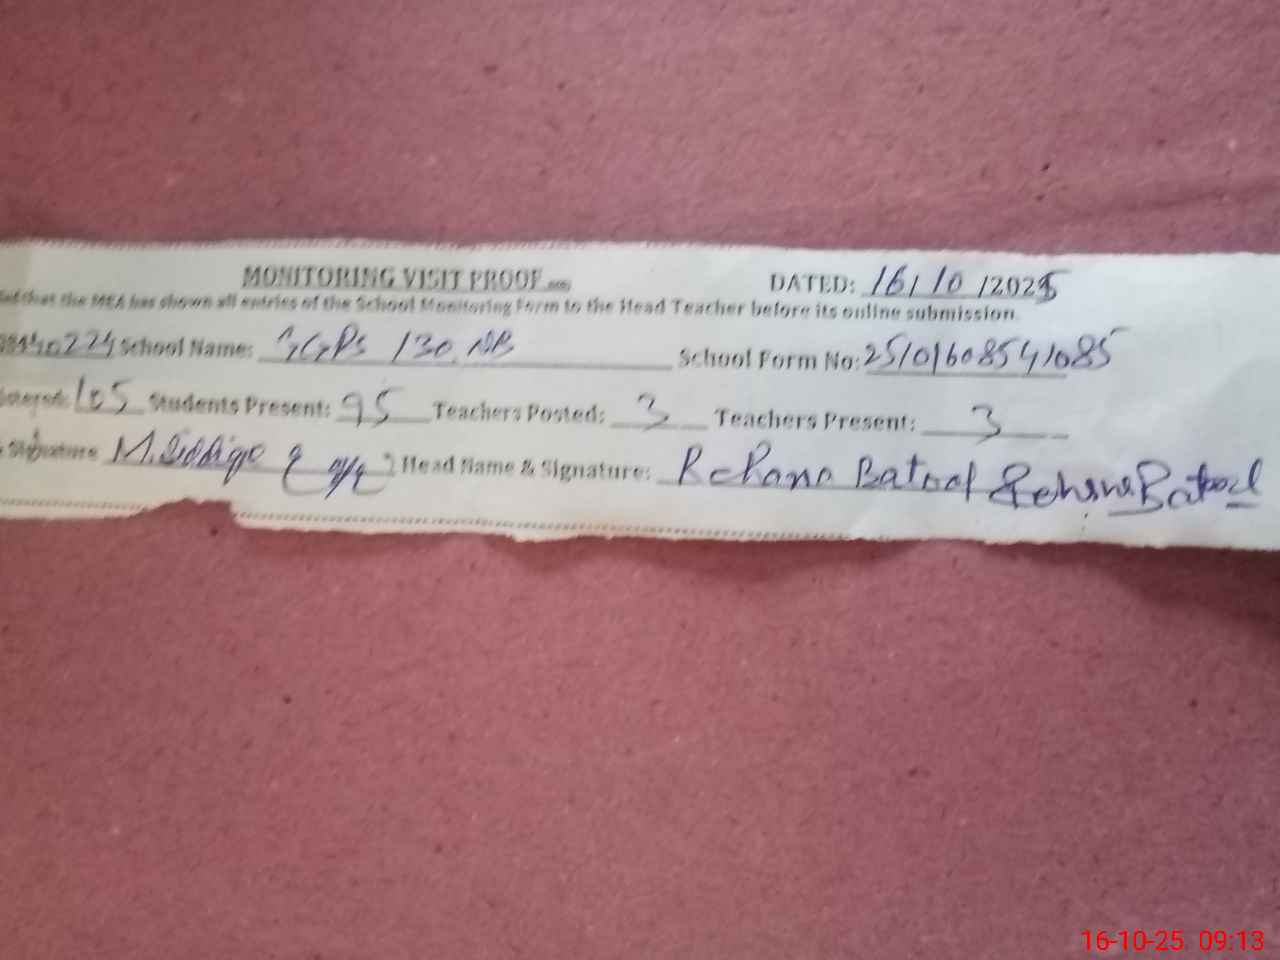 MONITORING VISIT PROOF DATED: 16/10/2025
that the MEA has shown all entries of the School Monitoring Form to the Head Teacher before its online submission.
School Name: GGPS 130 NB School Form No: 25101608541085
105 Students Present: 95 Teachers Posted: 3 Teachers Present: 3
Signature M. Siddiqe Head Name & Signature: Rehana Batool Rehana Batool
16-10-25 09:13